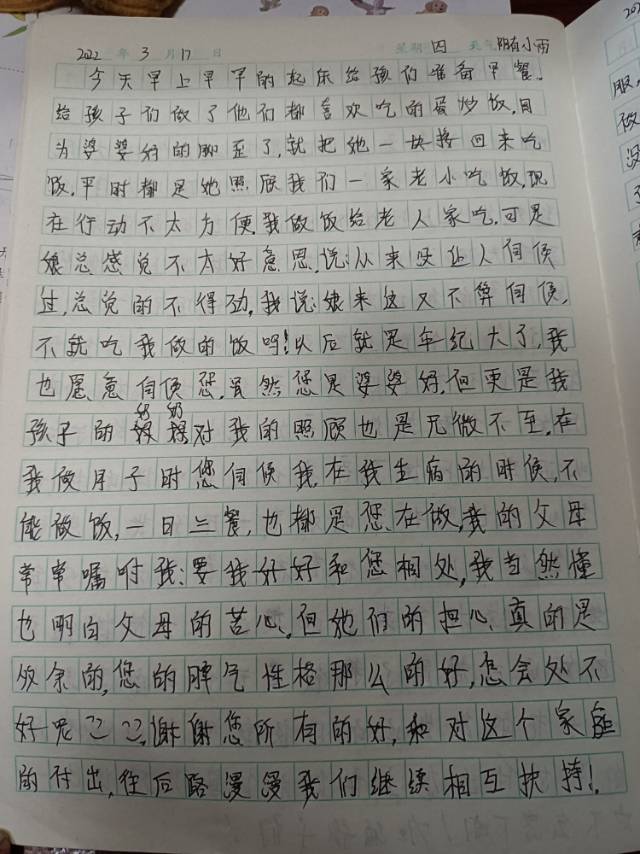 2022年3月17日 星期四 天气阴有小雨
今天早上早早的起床给孩们准备早餐.
给孩子们做了他们都喜欢吃的蛋炒饭,因
为婆婆妈的脚歪了,就把她一块接回来吃
饭,平时都是她照顾我们一家老小吃饭,现
在行动不太方便,我做饭给老人家吃,可是
娘总感觉不太好意思,说:从来没让人伺候
过,总觉的不得劲,我说:娘来这又不算伺候,
不就吃我做的饭吗!以后就是年纪大了,我
也愿意伺侯您,虽然您是婆婆妈,但更是我
孩子的奶奶对我的照顾也是无微不至,在
我做月子时您伺侯我,在我生病的时侯,不
能做饭,一日三餐,也都是您在做,我的父母
常常嘱咐我:要我好好和您相处,我当然懂
也明白父母的苦心,但她们的担心真的是
多余的,您的脾气性格那么的好,怎会处不
好呢??,谢谢您所有的好,和对这个家庭
的付出,往后路漫漫我们继续相互扶持!
服,
做
没